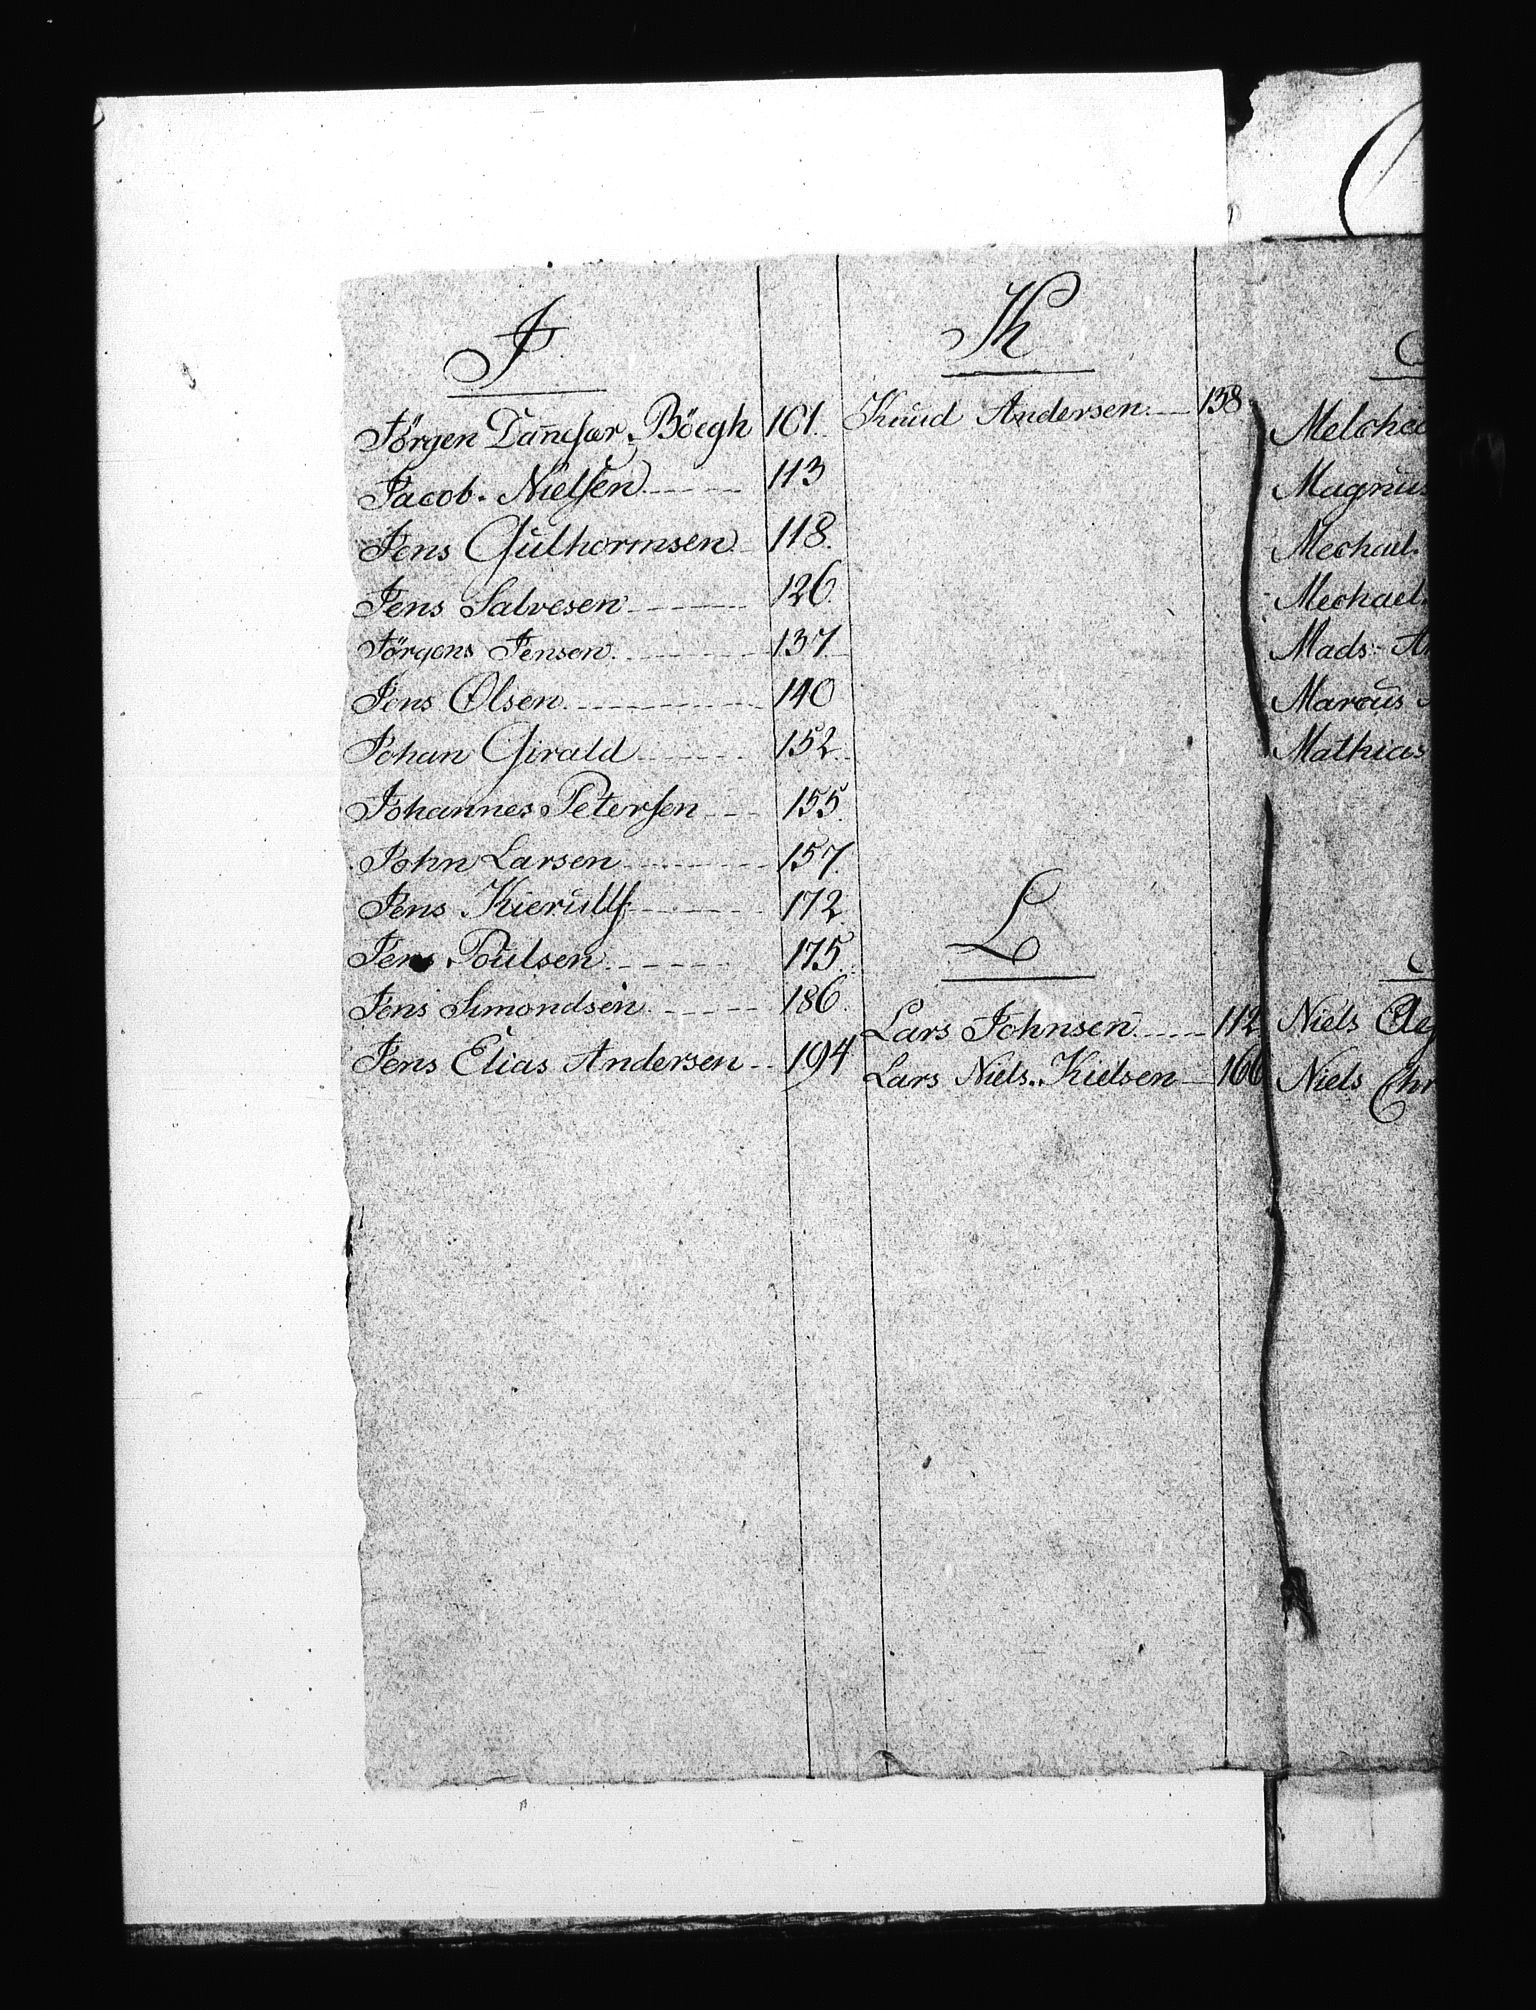 J
Jörgen Dannefær Böegh 101.
Jacob Nielsen 113
Jens Gulhormsen 118.
Jens Salvesen 126
Jörgens Jensen 137
Jens Olsen 140
Johan Girald 152
Johannes Petersen 155.
John Larsen 157.
Jens Kierulff 172
Jens Poulsen 175.
Jens Simondsen 186.
Jens Elias Andersen 194
K
Knud Andersen 138
L
Lars Johnsen 112
Lars Niels. Kielsen 166
Magnus
Mechael
Mechael
Mads
Marcus
Mathias
Niels
Niels Chr